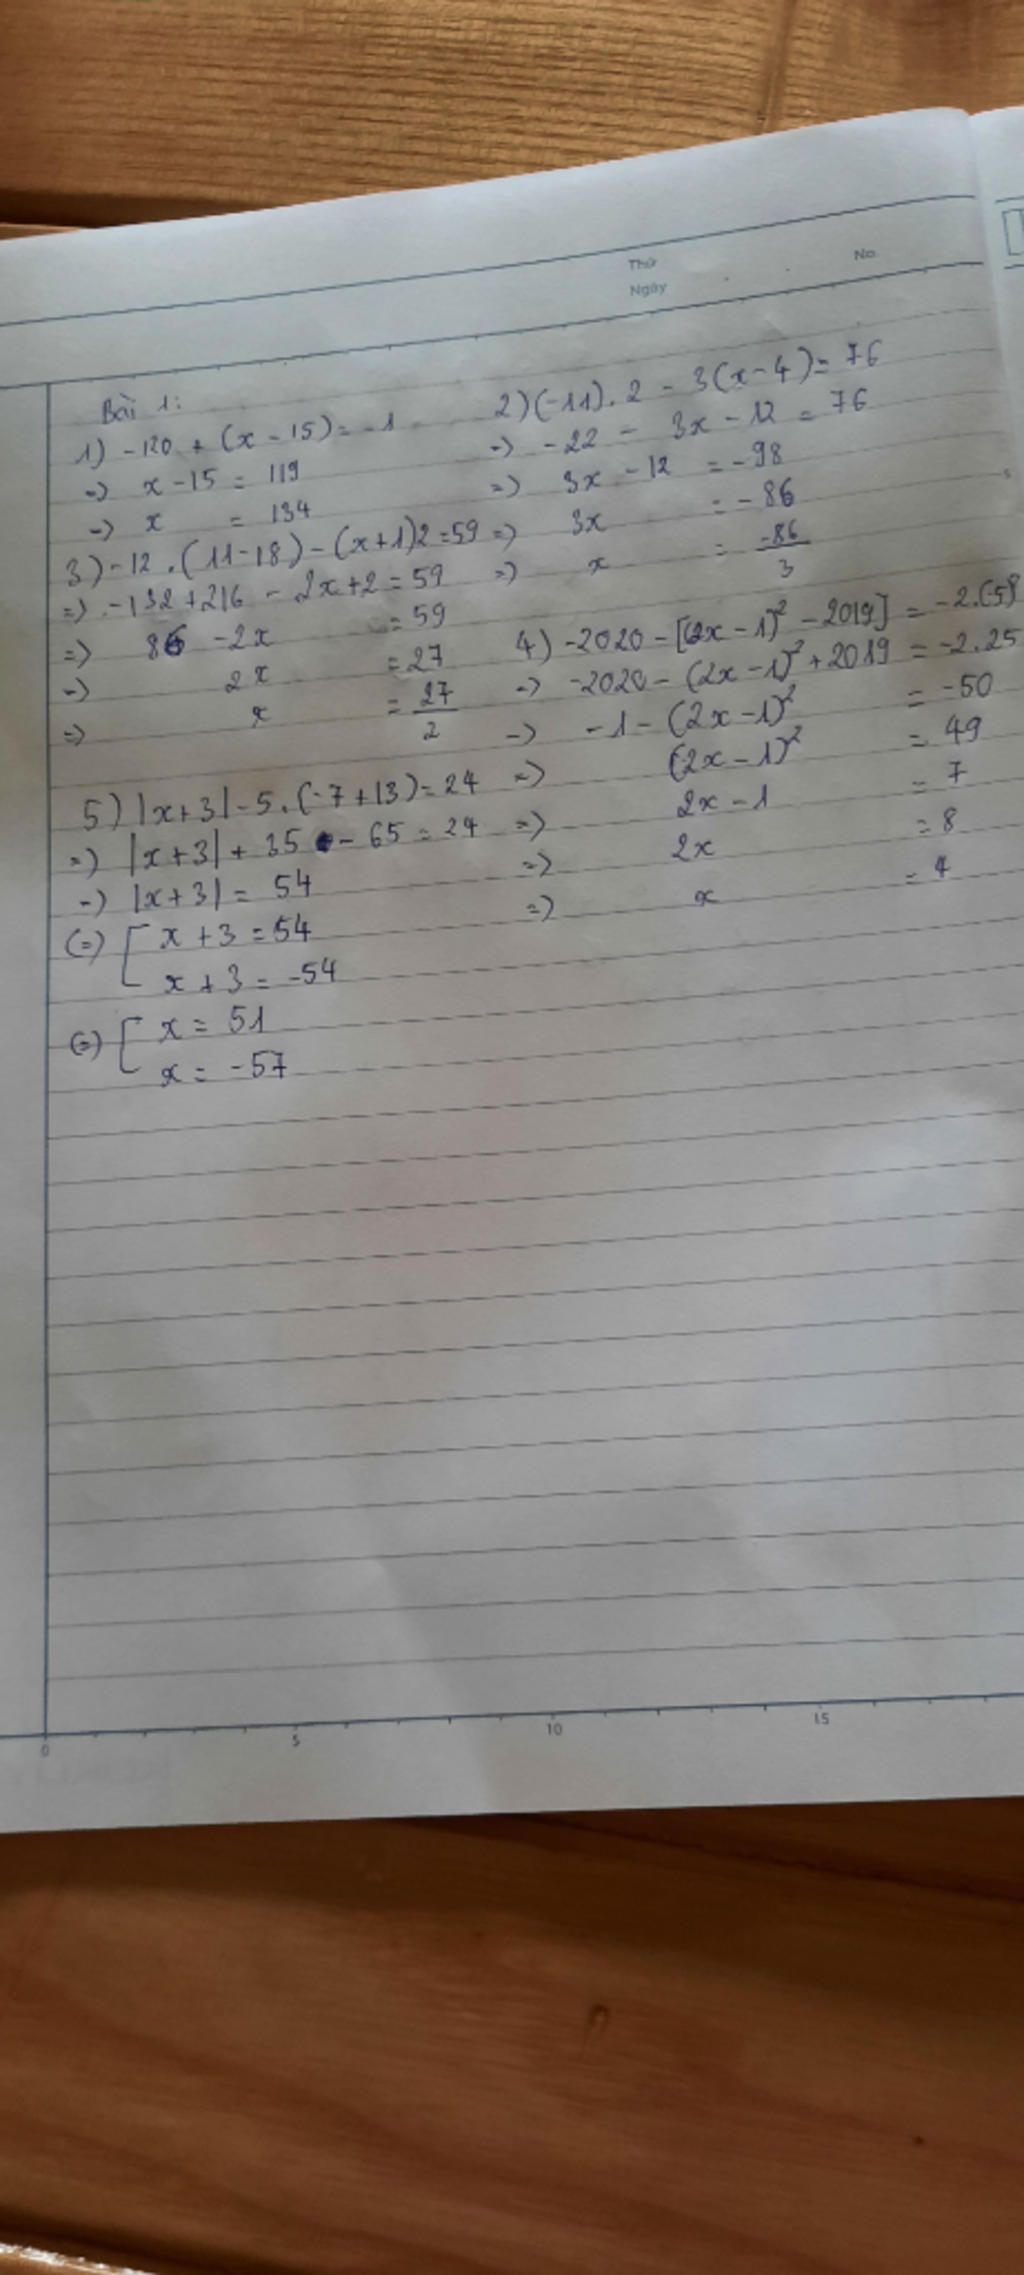 Thứ
Ngày
No.
Bài 1:
1) -120 + (x - 15) = -1
=) x - 15 = 119
=) x = 134
2) (-11). 2 - 3(x - 4) = 76
=) -22 - 3x - 12 = 76
=) 3x - 12 = -98
=) 3x = -86
=) x = -86/3
3) -12 . (11 - 18) - (x + 1)2 = 59
=) -132 + 216 - 2x + 2 = 59
=) 86 - 2x = 59
=) 2x = 27
=) x = 27/2
4) -2020 - [(2x - 1)² - 2019] = -2.(-5)²
=) -2020 - (2x - 1)² + 2019 = -2.25
=) -1 - (2x - 1)² = -50
=) (2x - 1)² = 49
=) 2x - 1 = 7
=) 2x = 8
=) x = 4
5) |x + 3| - 5 . (-7 + 13) = 24
=) |x + 3| + 35 - 65 = 24
=) |x + 3| = 54
(=) [ x + 3 = 54
x + 3 = -54
(=) [ x = 51
x = -57
0 5 10 15